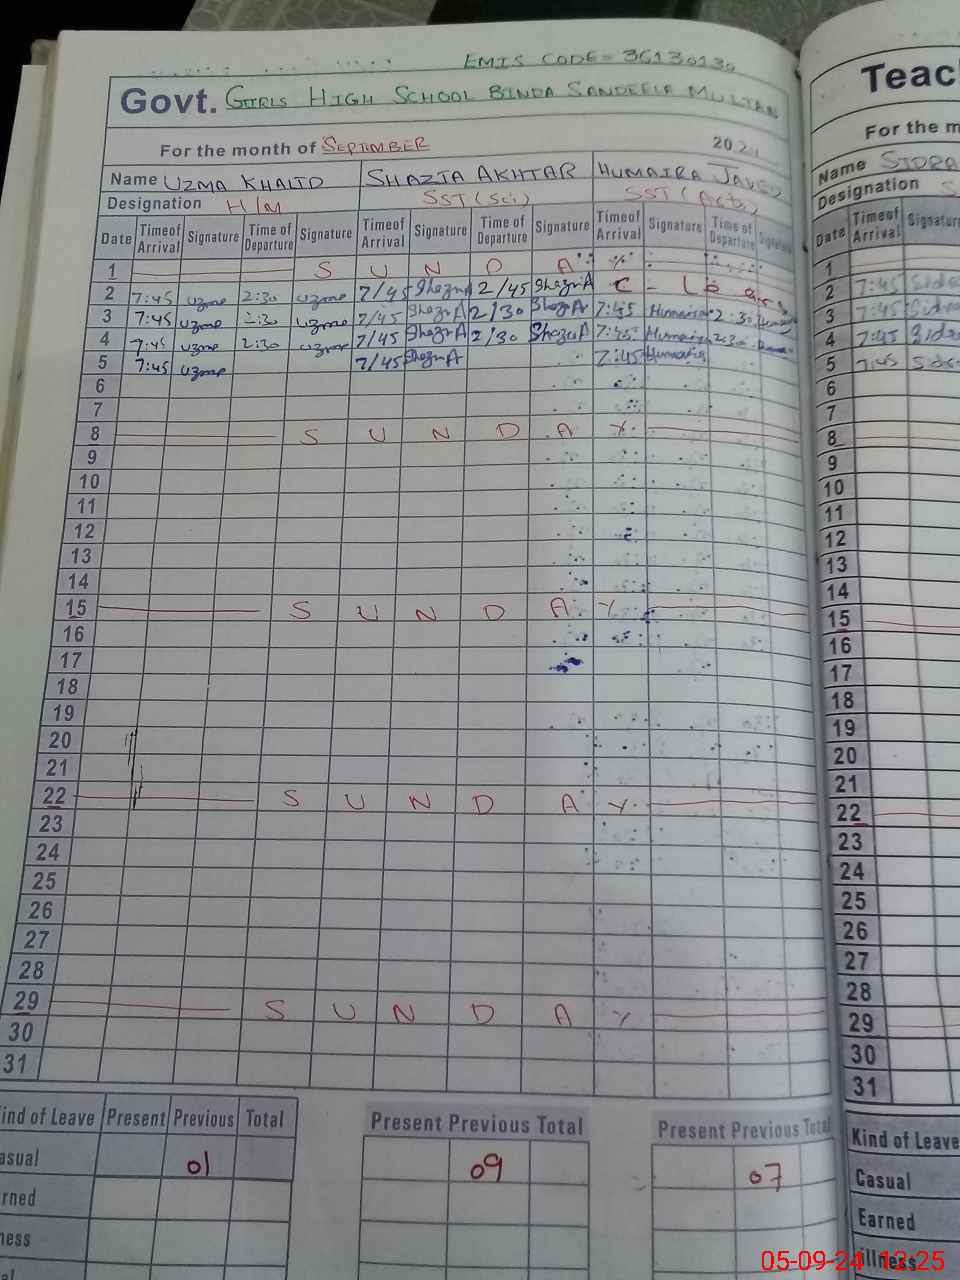 EMIS CODE= 36130130
Govt. GIRLS HIGH SCHOOL BINDA SANDEELA MULTAN
For the month of SEPTEMBER 202
Name UZMA KHALID SHAZIA AKHTAR HUMAIRA JAVED
Designation H/M SST (Sci) SST (Arts)
Date Time of Arrival Signature Time of Departure Signature Time of Arrival Signature Time of Departure Signature Time of Arrival Signature Time of Departure Signature
1 S U N D A Y
2 7:45 uzma 2:30 uzma 7/45 ShaziA 2/45 ShaziA C - L
3 7:45 uzma 2:30 uzma 7/45 ShaziA 2/30 ShaziA 7:45 Humaira 2:30
4 7:45 uzma 2:30 uzma 7/45 ShaziA 2/30 ShaziA 7:45 Humaira 2:30
5 7:45 uzma 7/45 ShaziA 7:45 Humaira
6
7
8 S U N D A Y
9
10
11
12
13
14
15 S U N D A Y
16
17
18
19
20
21
22 S U N D A Y
23
24
25
26
27
28
29 S U N D A Y
30
31
Kind of Leave Present Previous Total Present Previous Total Present Previous Total
asual 01 09 07
rned
ness
Teac
For the m
Name SIDRA
Designation S
Date Time of Arrival Signature
1
2 7:45 Sidra
3 7:45 Sidra
4 7:45 Sidra
5 7:45 Sidra
6
7
8
9
10
11
12
13
14
15
16
17
18
19
20
21
22
23
24
25
26
27
28
29
30
31
Kind of Leave
Casual
Earned
illness
05-09-24 12:25